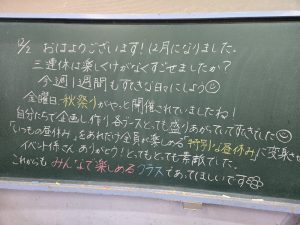 12/2 おはようございます！12月になりました。
三連休は楽しくけがなくすごせましたか？
今週1週間もすてきな日にしよう☺
金曜日、秋祭りがやっと開催されていましたね！
自分たちで企画し作り各ブースとっても盛りあがっていてすてきでした☺
「いつもの昼休み」をあれだけ全員が楽しめる"特別な昼休み"に変身させ
イベント係さん ありがとう！とってもとっても素敵でした。
これからも みんなで楽しめるクラスであってほしいです